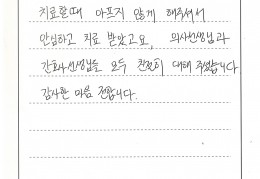 치료할때 아프지 않게 해주셔서
안심하고 치료 받았고요, 의사선생님과
간호사선생님들 모두 친절히 대해 주셨습니다
감사한 마음 전합니다.